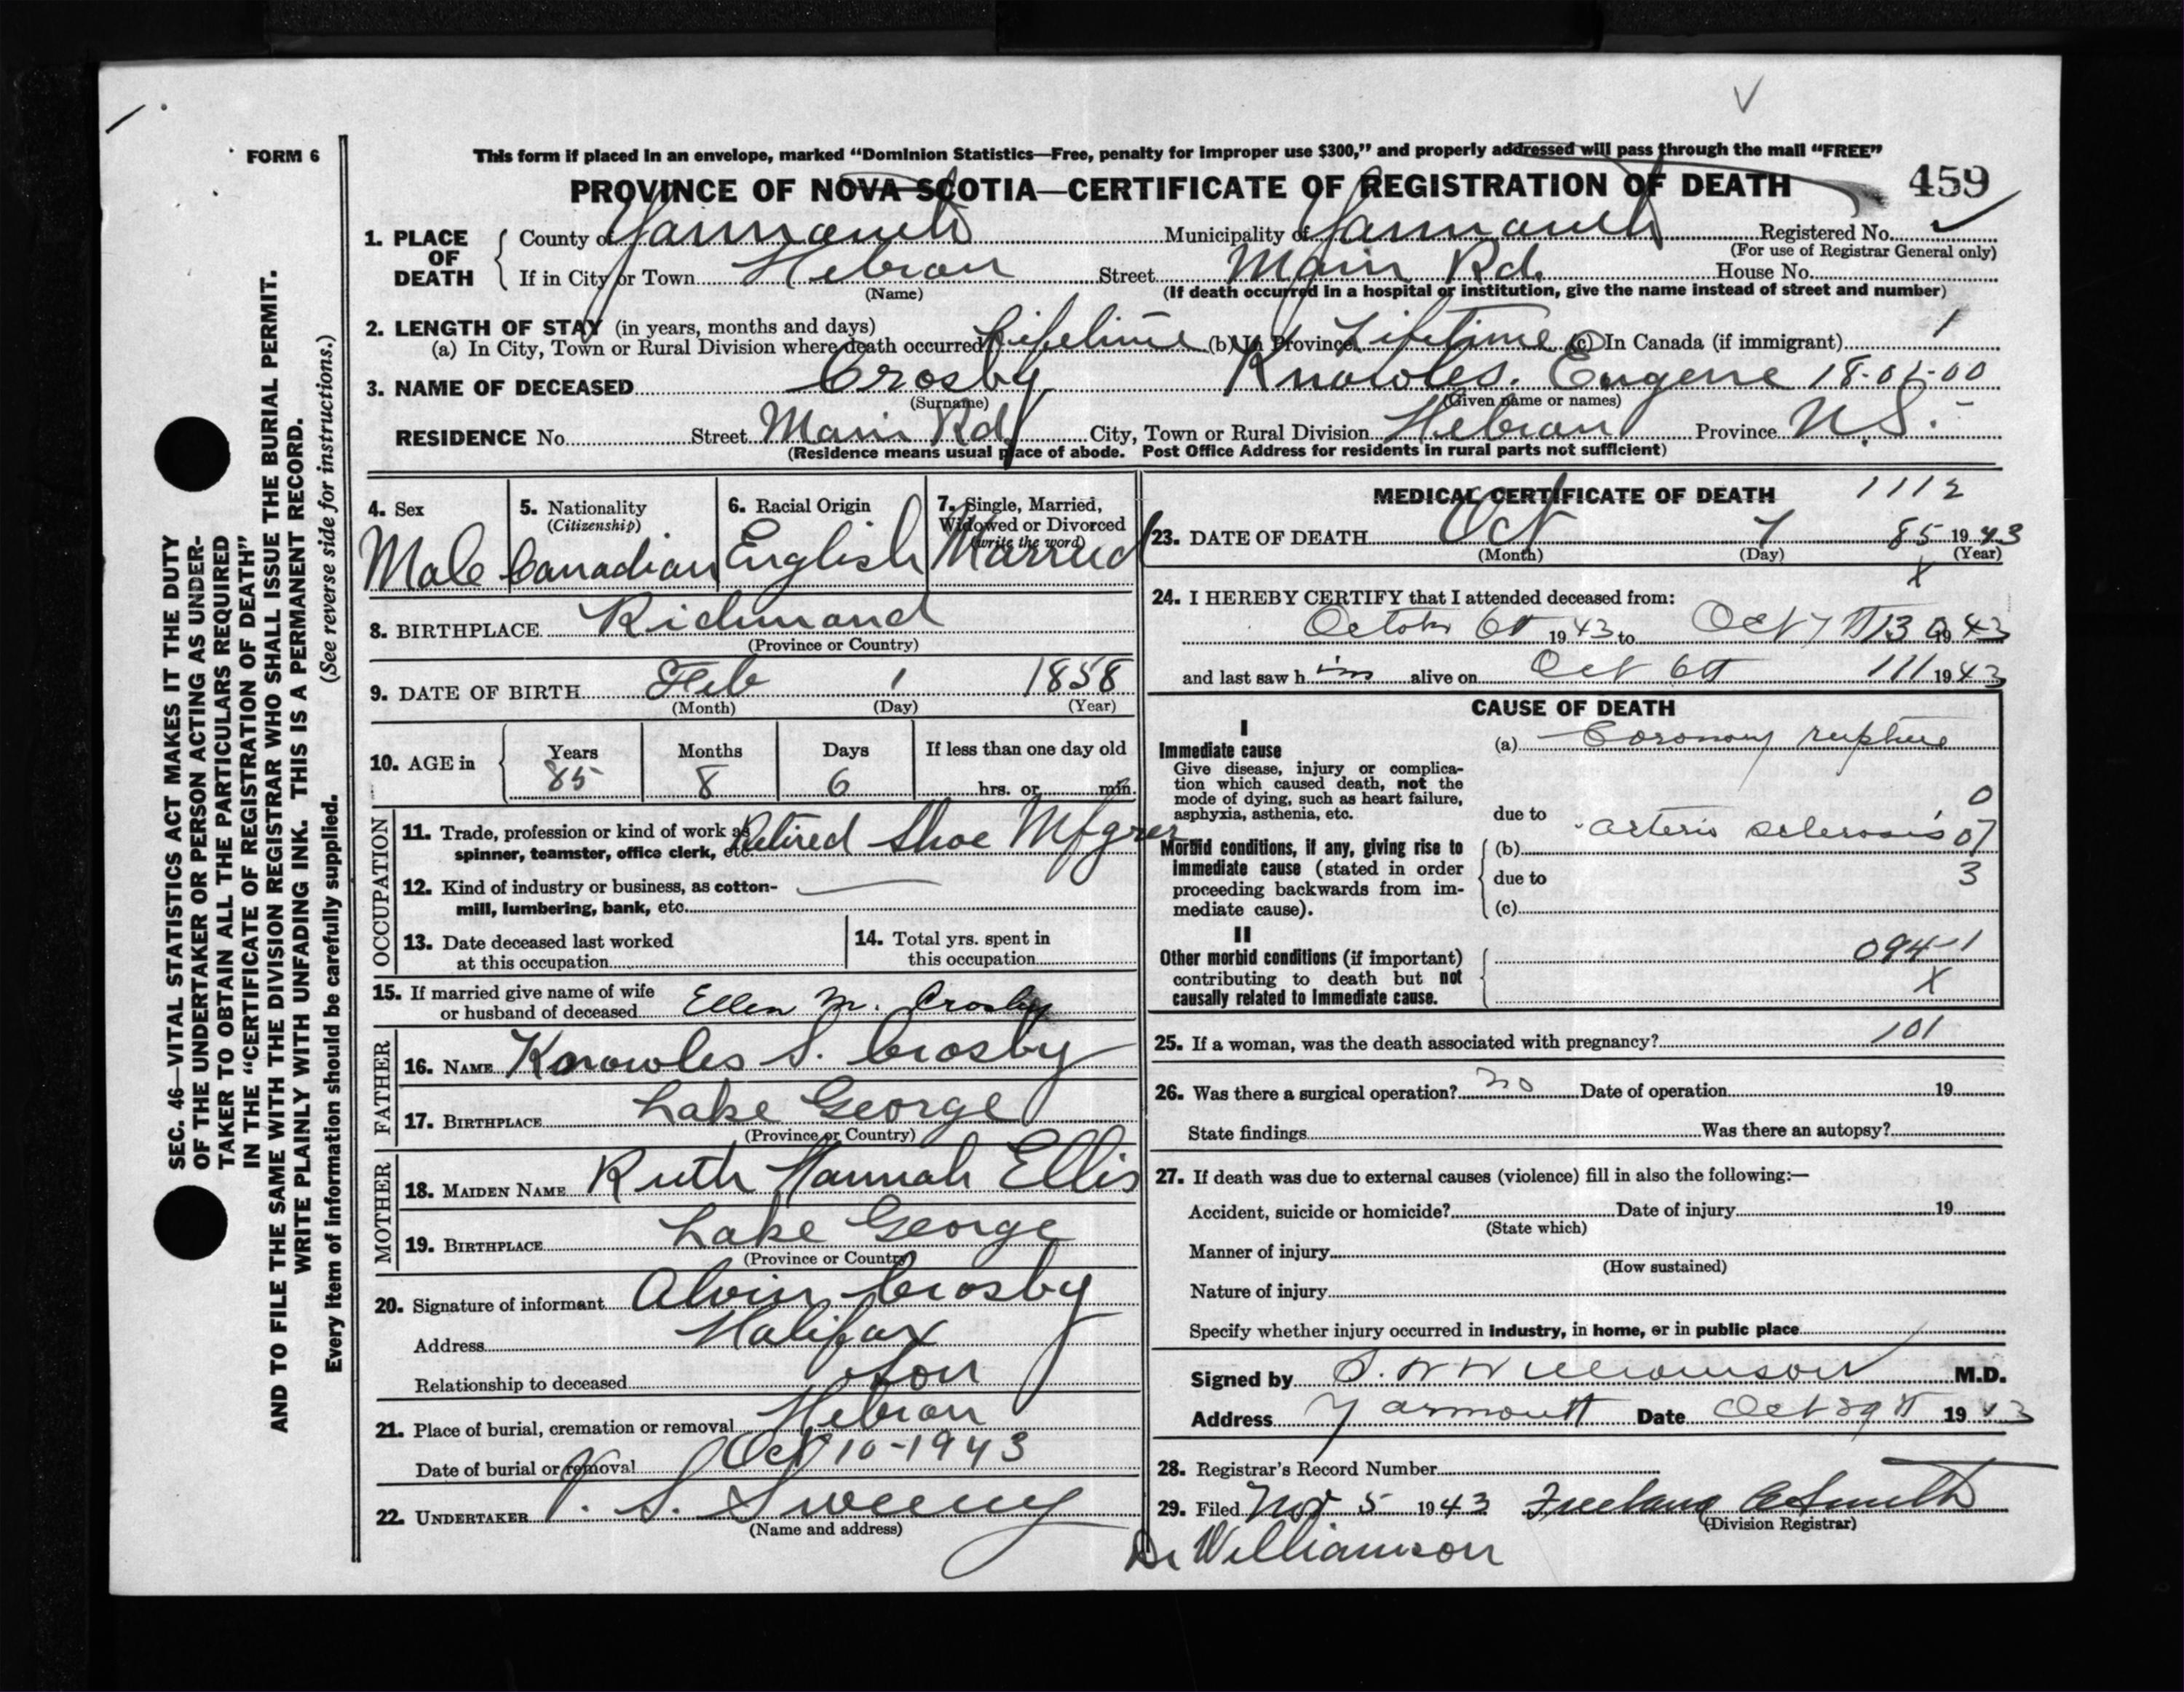 FORM 6
This form if placed in an envelope, marked “Dominion Statistics—Free, penalty for improper use $300,” and properly addressed will pass through the mail “FREE”
PROVINCE OF NOVA SCOTIA—CERTIFICATE OF REGISTRATION OF DEATH 459
1. PLACE OF DEATH
County of Yarmouth Municipality of Yarmouth Registered No.
(For use of Registrar General only)
If in City or Town Hebron Street Main Rd. House No.
(Name) (If death occurred in a hospital or institution, give the name instead of street and number)
2. LENGTH OF STAY (in years, months and days)
(a) In City, Town or Rural Division where death occurred Lifetime (b) In Province Lifetime (c) In Canada (if immigrant) 1
3. NAME OF DECEASED Crosby Knowles. Eugene
(Surname) (Given name or names)
RESIDENCE No. Street Main Rd City, Town or Rural Division Hebron Province N.S.
(Residence means usual place of abode. Post Office Address for residents in rural parts not sufficient)
4. Sex Male
5. Nationality (Citizenship) Canadian
6. Racial Origin English
7. Single, Married, Widowed or Divorced (write the word) Married
8. BIRTHPLACE Richmond
(Province or Country)
9. DATE OF BIRTH Feb 1 1858
(Month) (Day) (Year)
10. AGE in Years 85 Months 8 Days 6 If less than one day old hrs. or min.
OCCUPATION
11. Trade, profession or kind of work as spinner, teamster, office clerk, etc. Retired Shoe Mfgrer
12. Kind of industry or business, as cotton-
mill, lumbering, bank, etc. —
13. Date deceased last worked
at this occupation
14. Total yrs. spent in
this occupation
15. If married give name of wife
or husband of deceased Ellen M. Crosby
FATHER
16. NAME Knowles S. Crosby
17. BIRTHPLACE Lake George
(Province or Country)
MOTHER
18. MAIDEN NAME Ruth Hannah Ellis
19. BIRTHPLACE Lake George
(Province or Country)
20. Signature of informant Alvin Crosby
Address Halifax
Relationship to deceased Son
21. Place of burial, cremation or removal Hebron
Date of burial or removal Oct 10-1943
22. UNDERTAKER V. S. Sweeny
(Name and address)
MEDICAL CERTIFICATE OF DEATH 1112
23. DATE OF DEATH Oct 7 85 1943
(Month) (Day) (Year)
X
24. I HEREBY CERTIFY that I attended deceased from:
19 43 to 43
and last saw h im alive on Oct 6th 111 1943
CAUSE OF DEATH
I
Immediate cause
Give disease, injury or complica-
tion which caused death, not the
mode of dying, such as heart failure,
asphyxia, asthenia, etc.
(a) Coronary rupture
0
due to
Morbid conditions, if any, giving rise to
immediate cause (stated in order
proceeding backwards from im-
mediate cause).
(b) arterio sclerosis 07
due to 3
(c)
II
Other morbid conditions (if important)
contributing to death but not
causally related to immediate cause.
094-1
X
25. If a woman, was the death associated with pregnancy? 101
26. Was there a surgical operation? no Date of operation 19
State findings Was there an autopsy?
27. If death was due to external causes (violence) fill in also the following:—
Accident, suicide or homicide? Date of injury 19
(State which)
Manner of injury
(How sustained)
Nature of injury
Specify whether injury occurred in industry, in home, or in public place
Signed by Williamson M.D.
Address Yarmouth Date Oct 19 43
28. Registrar's Record Number
29. Filed Nov 5 1943 Smith
(Division Registrar)
Dr Williamson
SEC. 46—VITAL STATISTICS ACT MAKES IT THE DUTY
OF THE UNDERTAKER OR PERSON ACTING AS UNDER-
TAKER TO OBTAIN ALL THE PARTICULARS REQUIRED
IN THE “CERTIFICATE OF REGISTRATION OF DEATH”
AND TO FILE THE SAME WITH THE DIVISION REGISTRAR WHO SHALL ISSUE THE BURIAL PERMIT.
WRITE PLAINLY WITH UNFADING INK. THIS IS A PERMANENT RECORD.
Every item of information should be carefully supplied. (See reverse side for instructions.)